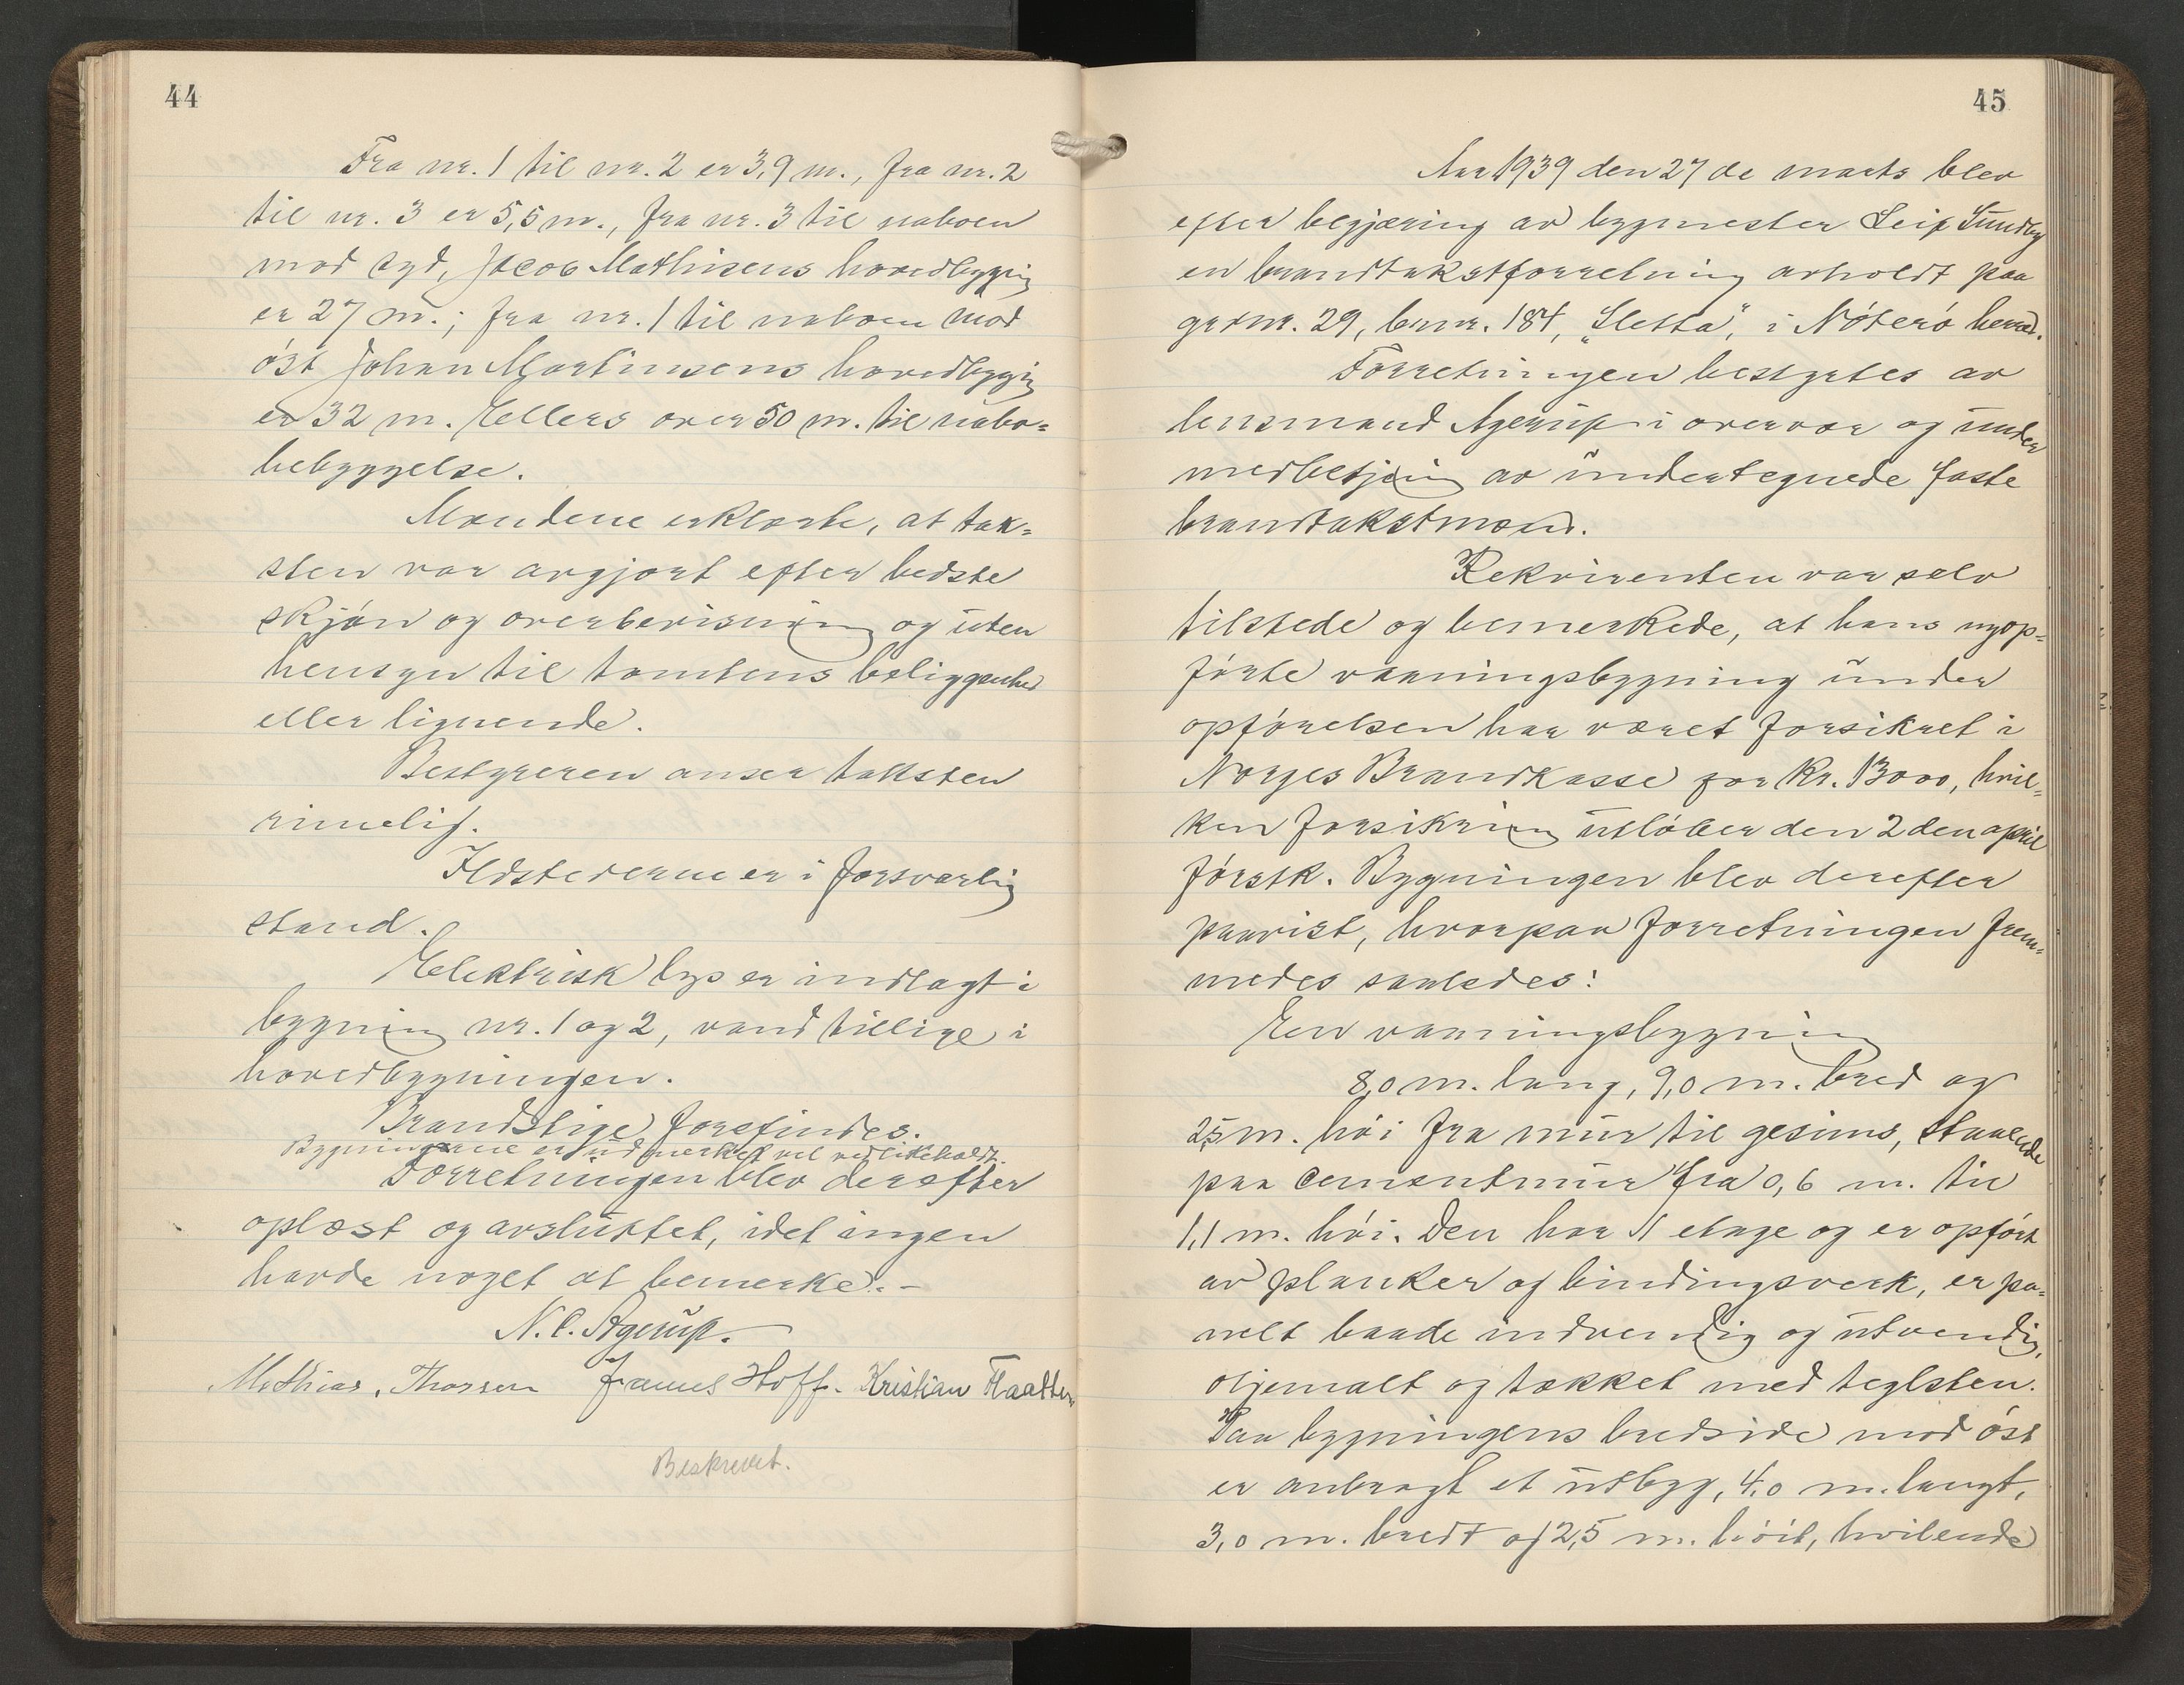 44
Fra nr. 1 til nr. 2 er 3,9 m., fra nr. 2
til nr. 3 er 5,5 m., fra nr. 3 til naboen
mod syd, Jacob Mathisens hovedbygging
er 27 m.; fra nr. 1 til naboen mod
øst Johan Martinsens hovedbygging
er 32 m. Ellers over 50 m. til nabo-
bebyggelse.
Mændene erklærte, at tak-
sten var avgjort efter bedste
skjøn og overbevisning og uten
hensyn til tomtens beliggenhed
eller lignende.
Bestyreren anser taksten
rimelig.
Ildstederne er i forsvarlig
stand.
Elektrisk lys er indlagt i
bygning nr. 1 og 2, vand tillige i
hovedbygningen.
Brandstige forefindes.
Bygningerne er udmerket vel vedlikeholdt.
Forretningen blev derefter
oplæst og avsluttet, idet ingen
havde noget at bemerke. -
N. C. Agerup.
Mathias Thorsen Hoff. Kristian Flaatten
Beskrevet.
45
Aar 1939 den 27 de marts blev
efter begjæring av bygmester Leif Sundby
en brandtakstforretning avholdt paa
gardnr. 29, brnr. 184, "Sletta", i Nøterø herred.
Forretningen bestyrtes av
lensmand Agerup i overvær og under
medbetjening av undertegnede faste
brandtakstmænd.
Rekvirenten var selv
tilstede og bemerkede, at hans nyop-
førte vaaningsbygning under
opførelsen har været forsikret i
Norges Brandkasse for kr. 13000, hvil-
ken forsikring utløber den 2 den april
førstk. Bygningen blev derefter
paavist, hvorpaa forretningen frem-
medes saaledes:
En vaaningsbygning
8,0 m. lang, 9,0 m. bred og
2,5 m. høi fra mur til gesims, staaende
paa cementmur fra 0,6 m. til
1,1 m. høi. Den har 1 etage og er opført
av planker og bindingsverk, er pa-
nelt baade indvendig og utvendig,
oljemalt og tækket med teglsten.
Paa bygningens bredside mod øst
er anbragt et utbygg, 4,0 m. langt,
3,0 m. bredt og 2,5 m. høit, hvilende